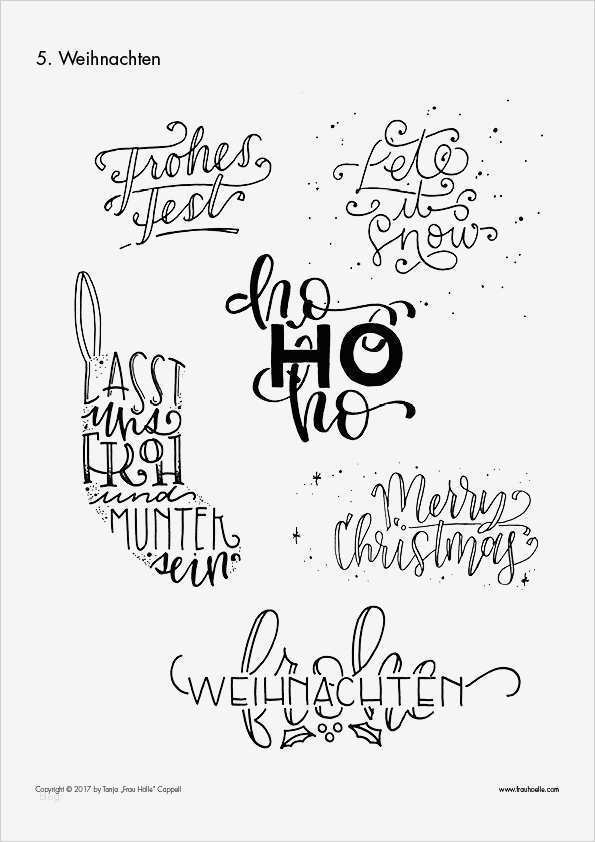 5. Weihnachten
Frohes
Fest
Let
it
Snow
ho
HO
ho
LASST
uns
FROH
und
MUNTER
sein
Merry
Christmas
frohe
WEIHNACHTEN
Copyright © 2017 by Tanja „Frau Hölle" Cappell
www.frauhoelle.com
blog